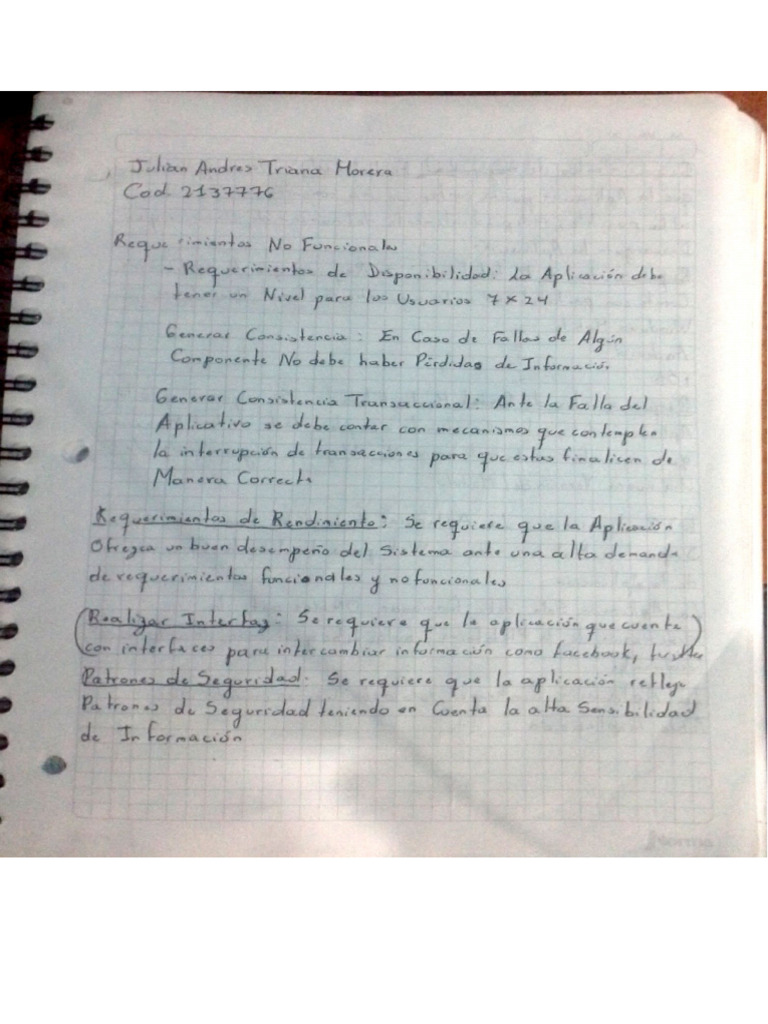 Julian Andres Triana Morera
Cod. 2137776
Requerimientos No Funcionales
- Requerimientos de Disponibilidad: La Aplicación debe
tener un Nivel para los Usuarios 7 x 24
Generar Consistencia: En Caso de Fallas de Algún
Componente No debe haber Pérdidas de Información
Generar Consistencia Transaccional: Ante la Falla del
Aplicativo se debe contar con mecanismos que contemplen
la interrupción de transacciones para que estas finalicen de
Manera Correcta
Requerimientos de Rendimiento: Se requiere que la Aplicación
Ofrezca un buen desempeño del Sistema ante una alta demanda
de requerimientos funcionales y no funcionales
(Realizar Interfaz: Se requiere que la aplicación que cuente)
con interfaces para intercambiar información como facebook, twitter
Patrones de Seguridad. Se requiere que la aplicación refleje
Patrones de Seguridad teniendo en Cuenta la alta Sensibilidad
de Información
Norma